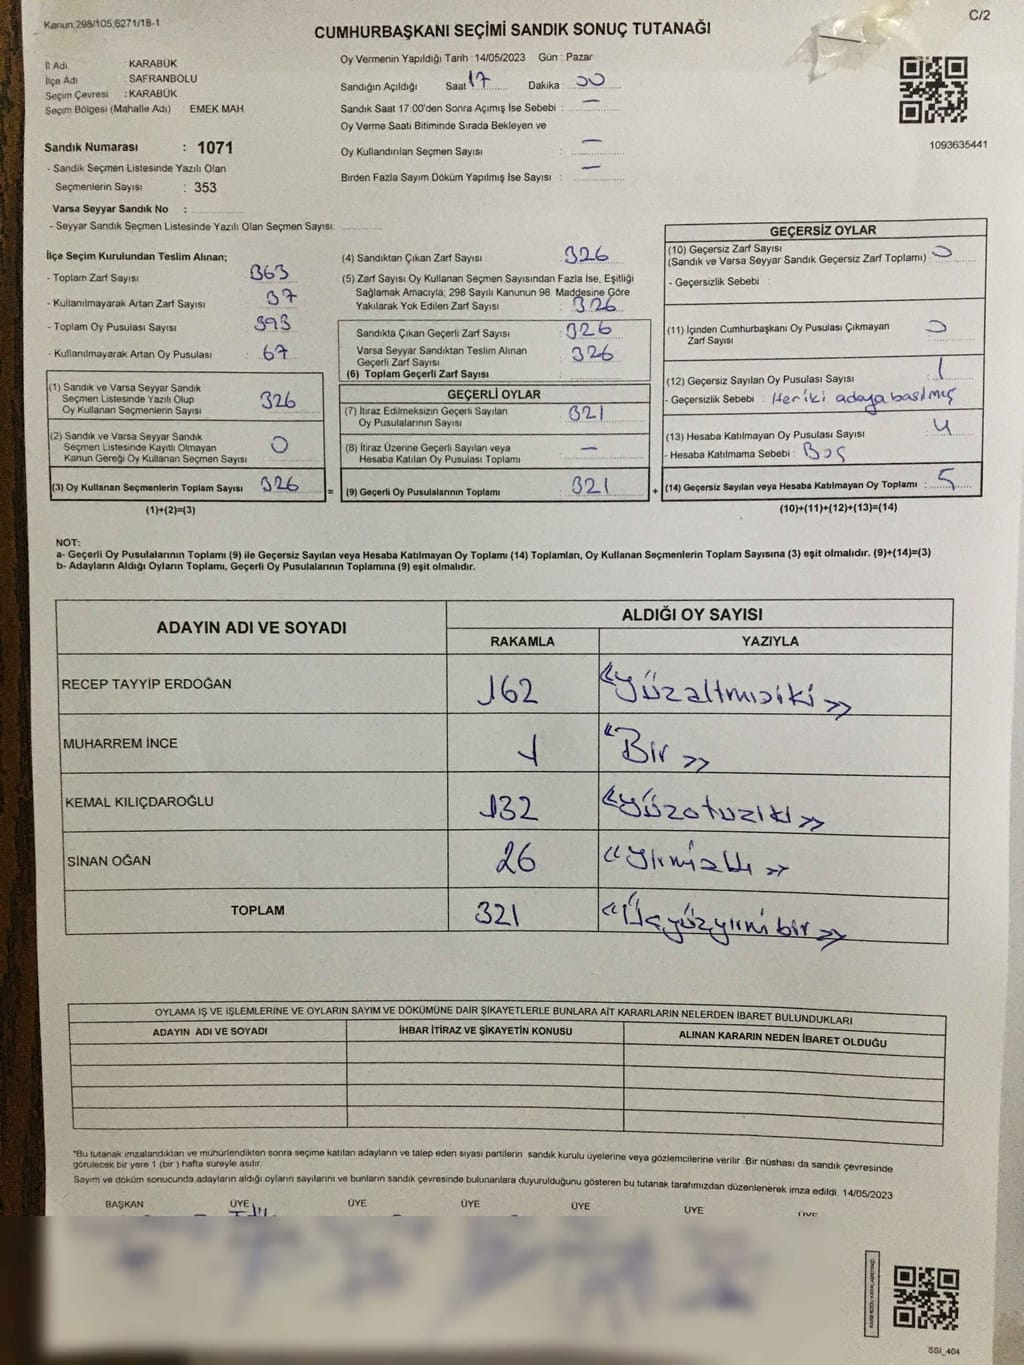 Kanun;298/105,6271/18-1
C/2
CUMHURBAŞKANI SEÇİMİ SANDIK SONUÇ TUTANAĞI
İl Adı KARABÜK
İlçe Adı : SAFRANBOLU
Seçim Çevresi : KARABÜK
Seçim Bölgesi (Mahalle Adı) EMEK MAH.
Oy Vermenin Yapıldığı Tarih : 14/05/2023 Gün : Pazar
Sandığın Açıldığı Saat 17 Dakika : 00
Sandık Saat 17:00'den Sonra Açımış İse Sebebi : —
Oy Verme Saati Bitiminde Sırada Bekleyen ve
Oy Kullandırılan Seçmen Sayısı : —
Birden Fazla Sayım Döküm Yapılmış İse Sayısı : —
1093635441
Sandık Numarası : 1071
- Sandık Seçmen Listesinde Yazılı Olan
Seçmenlerin Sayısı : 353
Varsa Seyyar Sandık No :
- Seyyar Sandık Seçmen Listesinde Yazılı Olan Seçmen Sayısı:
İlçe Seçim Kurulundan Teslim Alınan;
- Toplam Zarf Sayısı : 363
- Kullanılmayarak Artan Zarf Sayısı : 37
- Toplam Oy Pusulası Sayısı : 393
- Kullanılmayarak Artan Oy Pusulası : 67
(1) Sandık ve Varsa Seyyar Sandık
Seçmen Listesinde Yazılı Olup
Oy Kullanan Seçmenlerin Sayısı 326
(2) Sandık ve Varsa Seyyar Sandık
Seçmen Listesinde Kayıtlı Olmayan
Kanun Gereği Oy Kullanan Seçmen Sayısı 0
(3) Oy Kullanan Seçmenlerin Toplam Sayısı 326 =
(1)+(2)=(3)
(4) Sandıktan Çıkan Zarf Sayısı 326
(5) Zarf Sayısı Oy Kullanan Seçmen Sayısından Fazla İse, Eşitliği
Sağlamak Amacıyla; 298 Sayılı Kanunun 98. Maddesine Göre
Yakılarak Yok Edilen Zarf Sayısı : 326
Sandıkta Çıkan Geçerli Zarf Sayısı : 326
Varsa Seyyar Sandıktan Teslim Alınan
Geçerli Zarf Sayısı : 326
(6) Toplam Geçerli Zarf Sayısı :
GEÇERLİ OYLAR
(7) İtiraz Edilmeksizin Geçerli Sayılan
Oy Pusulalarının Sayısı 321
(8) İtiraz Üzerine Geçerli Sayılan veya
Hesaba Katılan Oy Pusulası Toplamı —
(9) Geçerli Oy Pusulalarının Toplamı 321 +
GEÇERSİZ OYLAR
(10) Geçersiz Zarf Sayısı
(Sandık ve Varsa Seyyar Sandık Geçersiz Zarf Toplamı) : 0
- Geçersizlik Sebebi :
(11) İçinden Cumhurbaşkanı Oy Pusulası Çıkmayan
Zarf Sayısı : 0
(12) Geçersiz Sayılan Oy Pusulası Sayısı : 1
- Geçersizlik Sebebi : Her iki adaya basılmış
(13) Hesaba Katılmayan Oy Pusulası Sayısı : 4
- Hesaba Katılmama Sebebi : Boş
(14) Geçersiz Sayılan veya Hesaba Katılmayan Oy Toplamı : 5
(10)+(11)+(12)+(13)=(14)
NOT:
a- Geçerli Oy Pusulalarının Toplamı (9) ile Geçersiz Sayılan veya Hesaba Katılmayan Oy Toplamı (14) Toplamları, Oy Kullanan Seçmenlerin Toplam Sayısına (3) eşit olmalıdır. (9)+(14)=(3)
b- Adayların Aldığı Oyların Toplamı, Geçerli Oy Pusulalarının Toplamına (9) eşit olmalıdır.
ADAYIN ADI VE SOYADI
ALDIĞI OY SAYISI
RAKAMLA YAZIYLA
RECEP TAYYİP ERDOĞAN 162 «Yüzaltmışiki»
MUHARREM İNCE 1 "Bir»
KEMAL KILIÇDAROĞLU 132 «Yüzotuziki»
SİNAN OĞAN 26 «Yirmialtı»
TOPLAM 321 «Üçyüzyirmibir»
OYLAMA İŞ VE İŞLEMLERİNE VE OYLARIN SAYIM VE DÖKÜMÜNE DAİR ŞİKAYETLERLE BUNLARA AİT KARARLARIN NELERDEN İBARET BULUNDUKLARI
ADAYIN ADI VE SOYADI İHBAR İTİRAZ VE ŞİKAYETİN KONUSU ALINAN KARARIN NEDEN İBARET OLDUĞU
*Bu tutanak imzalandıktan ve mühürlendikten sonra seçime katılan adayların ve talep eden siyasi partilerin sandık kurulu üyelerine veya gözlemcilerine verilir. Bir nüshası da sandık çevresinde
görülecek bir yere 1 (bir) hafta süreyle asılır.
Sayım ve döküm sonucunda adayların aldığı oyların sayılarını ve bunların sandık çevresinde bulunanlara duyurulduğunu gösteren bu tutanak tarafımızdan düzenlenerek imza edildi. 14/05/2023
BAŞKAN ÜYE ÜYE ÜYE ÜYE ÜYE ÜYE
SSI_404